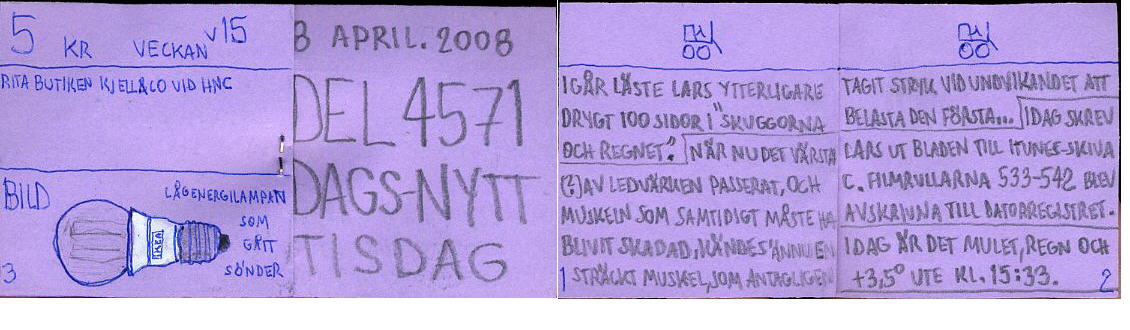 5 KR VECKAN v15
RITA BUTIKEN KJELL&CO VID HNC
BILD
LÅGENERGILAMPAN
SOM
GÅTT
SÖNDER
IKEA
3
8 APRIL. 2008
DEL 4571
DAGS-NYTT
TISDAG
IGÅR LÄSTE LARS YTTERLIGARE
DRYGT 100 SIDOR I "SKUGGORNA
OCH REGNET". NÄR NU DET VÄRSTA
(?) AV LEDVÄRKEN PASSERAT, OCH
MUSKELN SOM SAMTIDIGT MÅSTE HA
BLIVIT SKADAD, KÄNDES ÄNNU EN
1 STRÄCKT MUSKEL, SOM ANTAGLIGEN
TAGIT STRYK VID UNDVIKANDET ATT
BELASTA DEN FÖRSTA... IDAG SKREV
LARS UT BLADEN TILL ITUNES-SKIVA
C. FILMRULLARNA 533-542 BLEV
AVSKRIVNA TILL DATORREGISTRET.
IDAG ÄR DET MULET, REGN OCH
+3,5° UTE KL. 15:33.
2